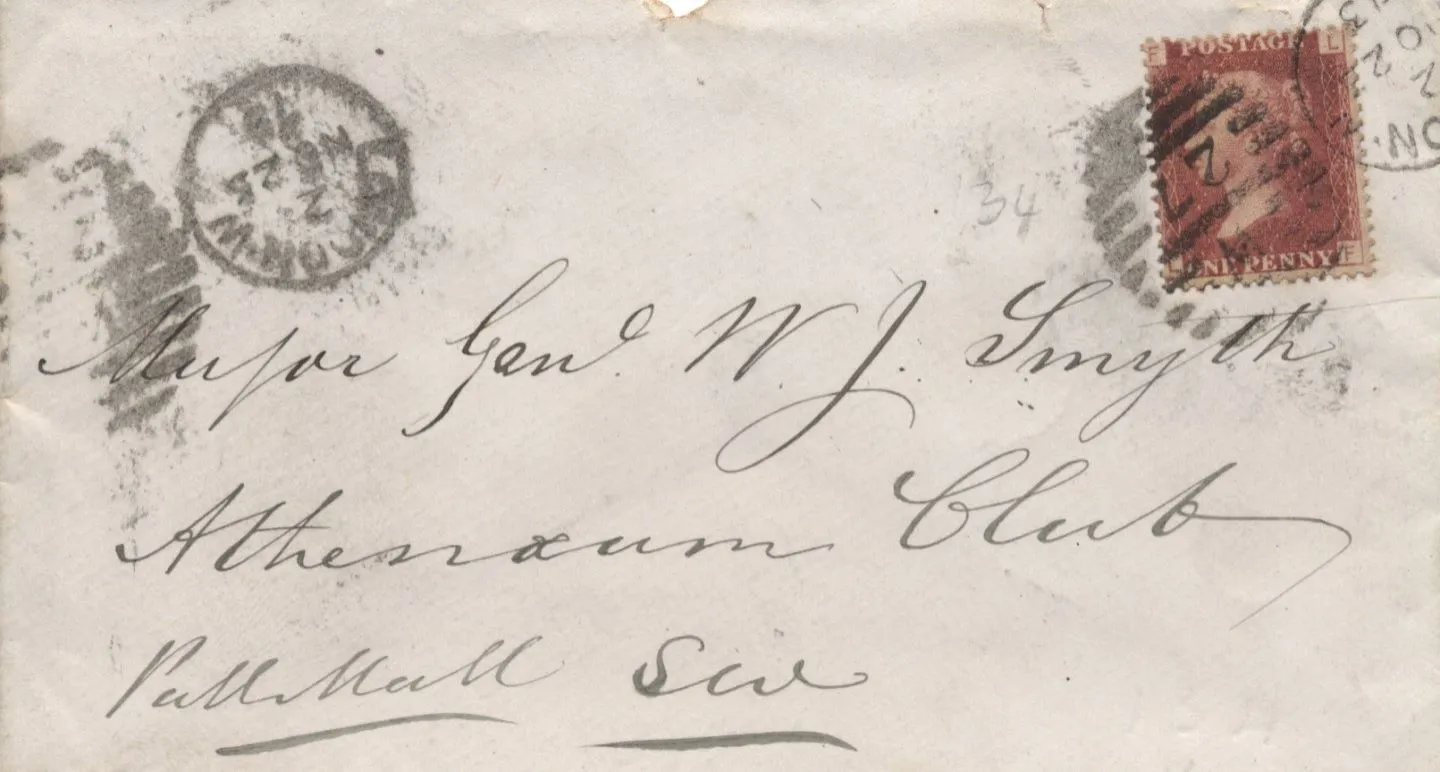 POSTAGE
F L
L F
ONE PENNY
34
Major Genl. W. J. Smyth
Athenæum Club
Pall Mall SW